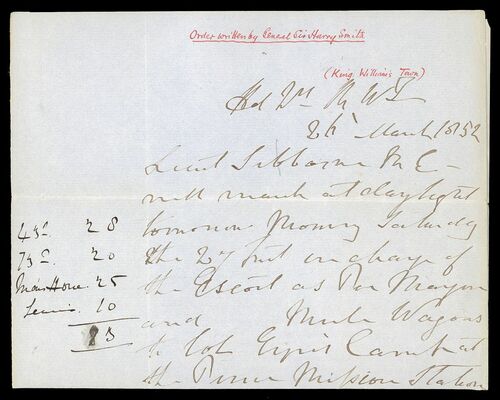 Order written by General Sir Harry Smith
(King William's Town)
Hd Qrs K W T
26 March 1852
Lieut R E
will march at daylight
tomorrow Morning Saturday
the 27 Inst in charge of
the Escort as Per Margin
and Mule Wagons
to Col Camp at
the Mission Station
43d. 28
73d. 20
20
25
10
83